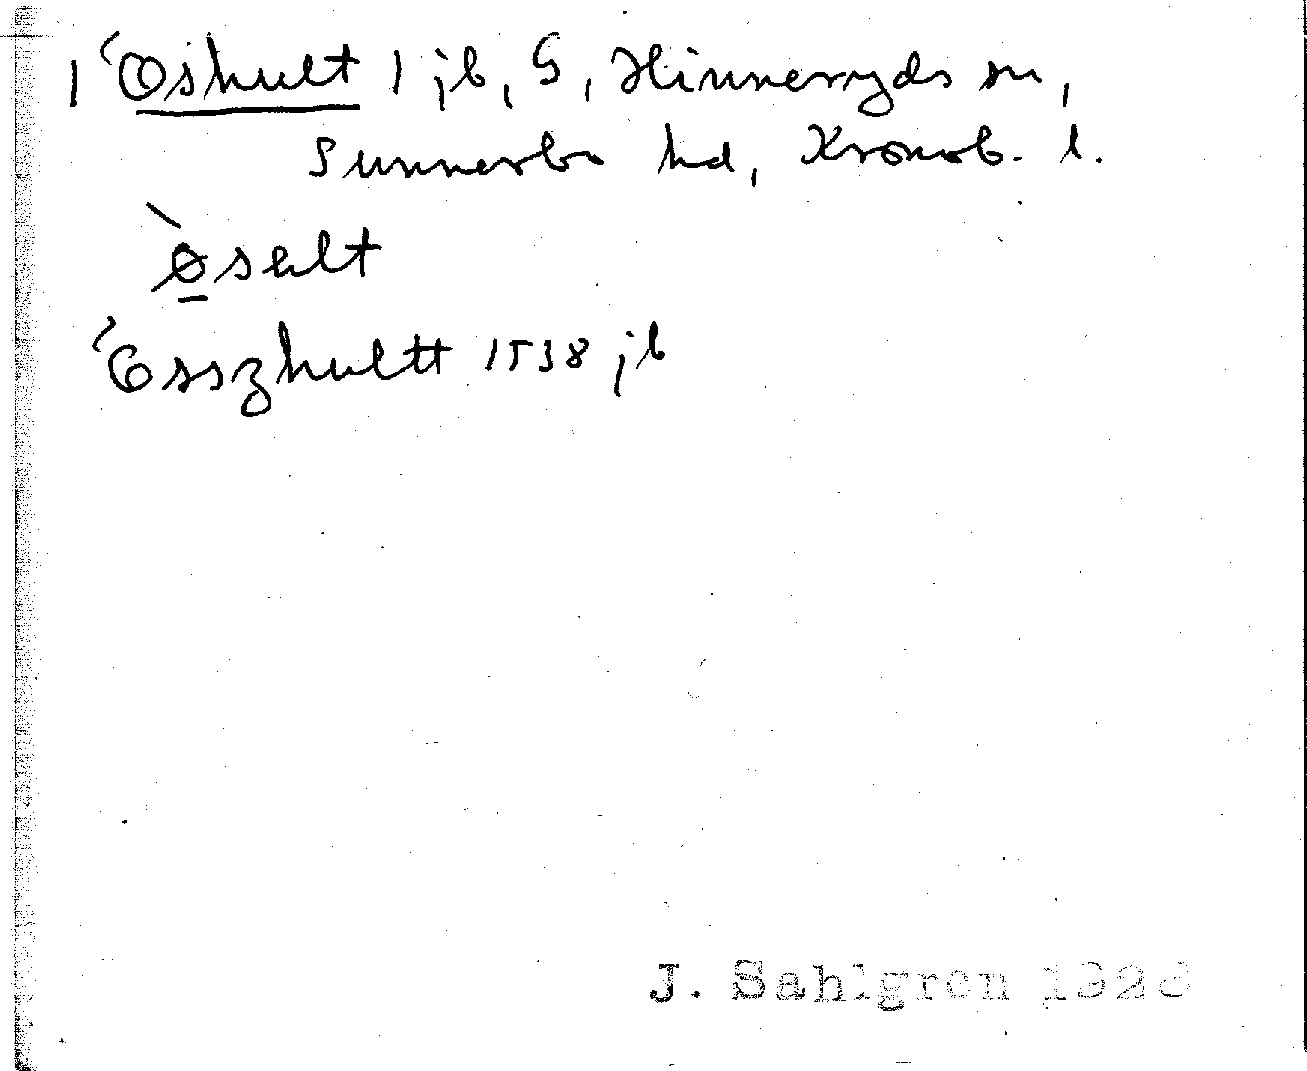 1 Öshult 1 jb, G, Hinneryds sn,
Sunnerbo hd, Kronob. l.
`øsəlt
Összhultt 1538 jb
J. Sahlgren 1926